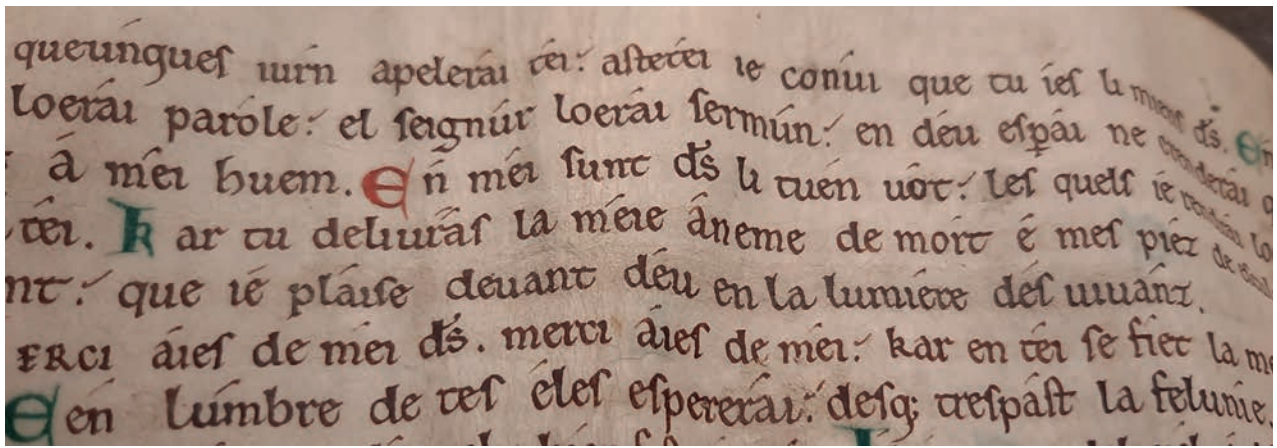 queunques iurn apelerái téi: astetéi ie coniui que tu iés li miens ds. En
loerái paróle: el seignúr loerái sermún: en déu espái ne crenderái
á méi huem. En méi sunt ds li tuén uót: les quels ié rendrái lo
téi. Kar tu deliurás la méie áneme de mort é mes piéz de
nt: que ié pláise deuant déu en la lumiére dés uiuánz.
ERCI áies de méi ds. merci áies de méi: kar en téi se fiet la me
En lúmbre de tes éles espererái: desq; trespást la felunie.